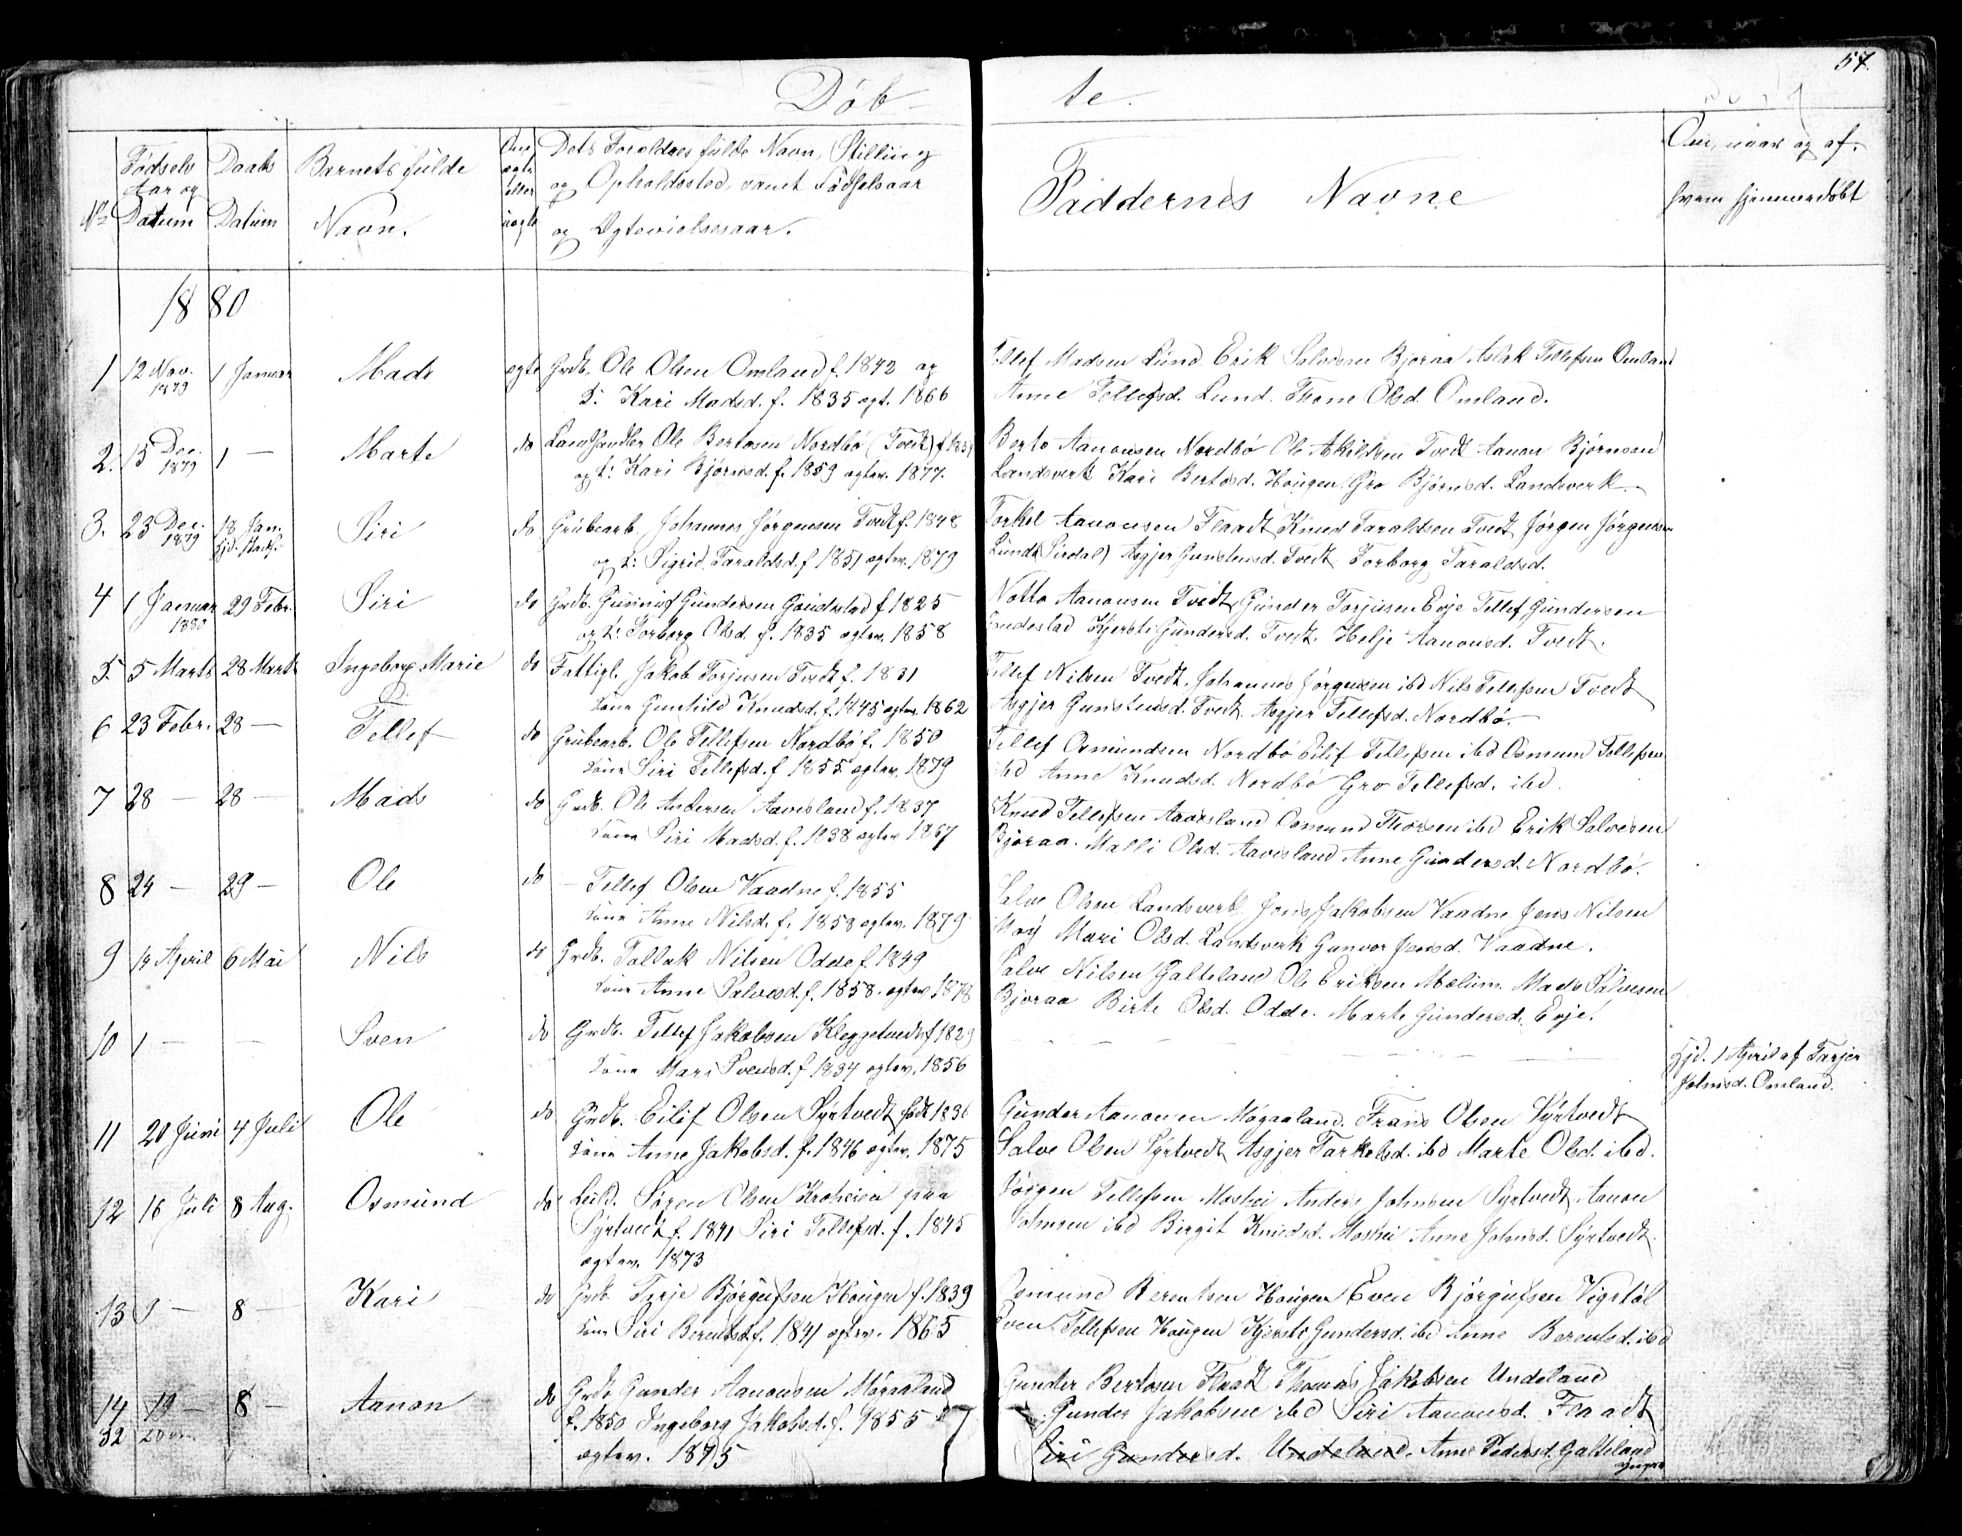 57.
Døbte.
No
Fødsels Aar og Datum
Daabs Datum
Barnets fulde Navn.
Om ægte eller uægte
Dets Forældres fulde Navn, Stilling
og Opholdssted, samt Fødselsaar
og Ægtevielsesaar.
Faddernes Navne
Om, naar og af
hvem hjemmedøbt
1880
1 12 Nov. 1879 1 Januar Mads ægte Grdb. Ole Olsen Omland f. 1842 og
K. Kari Madsd. f. 1835 ægt. 1866
Tellef Madsen Lund Erik Salvesen Bjoraa Aslak Tellefsen Omland
Anne Tellefsd. Lund. Thone Olsd. Omland.
2. 15 Dec. 1879 1 — Marte do Ole Bertosen Nordbö (Tvedt)
og K: Kari Bjørnsd. f. 1859 ægtev. 1877.
Berto Aanonsen Nordbö Ole Tvedt Aanon Björnsen
Landsverk Kari Bertosd. Hougen Gro Björnsd. Landsverk.
3. 23 Dec. 1879 18 Jan. Siri do Grubearb. Johannes Jørgensen Tvedt f. 1848
og K: Sigrid Taraldsd. f 1851 ægtev. 1879
Torkel Aanonsen Flaadt Knud Taraldsen Tvedt Jørgen Jørgensen
Lunde (Sirdal) Asgjer Gunstensd. Tvedt Torborg Taraldsd.
4 1 Januar 1880 29 Febr. Siri do Grdb. Gundersen f 1825
og K: Torborg Olsd. f. 1835 ægtev. 1858
Notto Aanonsen Tvedt Gunder Torjusen Evje Tellef Gundersen
Kjersti Gundersd. Tvedt. Helje Aanonsd. Tvedt.
5. 5 Marts 28 Marts Ingeborg Marie do Fattigl. Jakob Torjusen Tvedt f. 1831
Kone Gunhild Knudsd. f. 1845 ægtev. 1862
Tellef Nilsen Tvedt. Johannes Jørgensen ibd Nils Tellefsen Tvedt
Asgjer Gunstensd. Tvedt Asgjer Tellefsd. Nordbö.
6 23 Febr. 28 — Tellef do Grubearb. Ole Tellefsen Nordbö f. 1850
Kone Siri Tellefsd. f 1855 ægtev. 1879
Tellef Osmundsen Nordbö Eilif Tellefsen ibd Osmund Tellefsen
ibd Anne Knudsd. Nordbö Gro Tellefsd. ibd.
7 28 — 28 — Mads do Grdb. Ole Andersen Aavesland f. 1837
Kone Siri Madsd. f. 1838 ægtev 1867
Knud Tellefsen Aavesland Osmund Thorsen ibd Erik Salvesen
Bjoraa. Malli Olsd. Aavesland Anne Gundersd. Nordbö.
8 24 — 29 — Ole do — Tellef Olsen Vaadne f. 1855
Kone Anne Nilsd. f. 1858 ægtev. 1879
Salve Olsen Landsverk Jens Jakobsen Vaadne Jens Nilsen
Mari Olsd. Landsverk Gunvor Jensd. Vaadne.
9 14 April 6 Mai Nils do Grdb. Tallak Nilsen Odde f. 1849
Kone Anne Salvesd. f. 1858. ægtev 1878
Salve Nilsen Galteland Ole Eriksen Mælum Mads Salvesen
Bjoraa Birte Olsd. Odde. Marte Gundersd. Evje.
10 1 — — Sven do Grdb. Tellef Jakobsen Kleggetvedt f 1829
Kone Mari Svensd. f. 1834 ægtev. 1856
Hjd. 1 April af Tarjer
Johnsd. Omland.
11 20 Juni 4 Juli Ole do Grdb. Eilif Olsen Syrtvedt født 1836
Kone Anne Jakobsd. f. 1846 ægtev. 1875
Gunder Aanonsen Møgaaland. Frans Olsen Syrtvedt
Salve Olsen Syrtvedt Asgjer Tarkelsd. ibd Marte Olsd. ibd.
12 16 Juli 8 Aug. Osmund do Leid. Søren Olsen Kroheien paa
Syrtvedt f. 1841 Siri Tellefsd. f. 1845
ægtev. 1873
Jörgen Tellefsen Moshei Anders Johnsen Syrtvedt Aanon
Johnsen ibd Birgit Knudsd. Moshei Anne Johnsd. Syrtvedt.
13 9 — 8 — Kari do Grdb. Terje Bjørgufsen Hougen f. 1839
Kone Siri Berentsd. f. 1841 ægtev. 1865
Osmund Berentsen Hougen Even Bjørgufsen Vigstøl
Even Tellefsen Hougen Kjersti Gundersd. ibd Anne Berentsd. ibd
14 19 — 8 — Aanon do Grdb Gunder Aanonsen Møgaaland
f. 1850 Ingeborg Jakobsd. f. 1855
ægtev. 1875
Gunder Bertosen Flaadt Thomas Jakobsen Undeland
Gunder Jakobsen ibd Siri Aanonsd. Flaadt
Siri Gundersd. Undeland. Anne Pedersd. Galteland
yngre
32